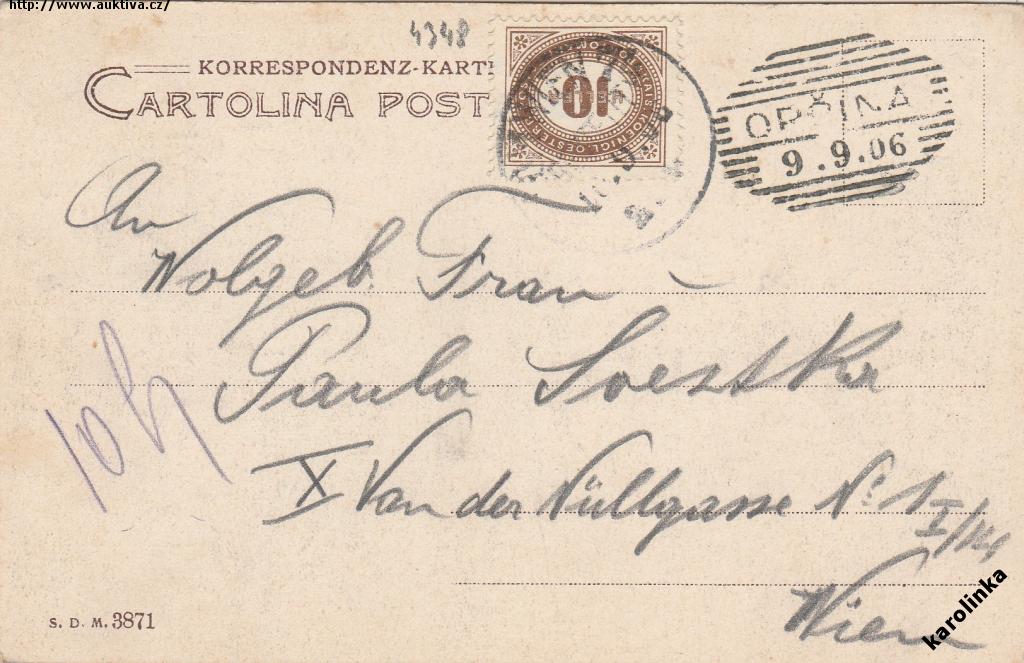 http://www.auktiva.cz/
4348
KORRESPONDENZ-KARTE
CARTOLINA POST
10
OPČINA
9.9.06
An
Wolgeb. Frau
Paula Svestka
10 h
X Van der Nüllgasse No 1
I/14
Wien
S. D. M. 3871
karolinka